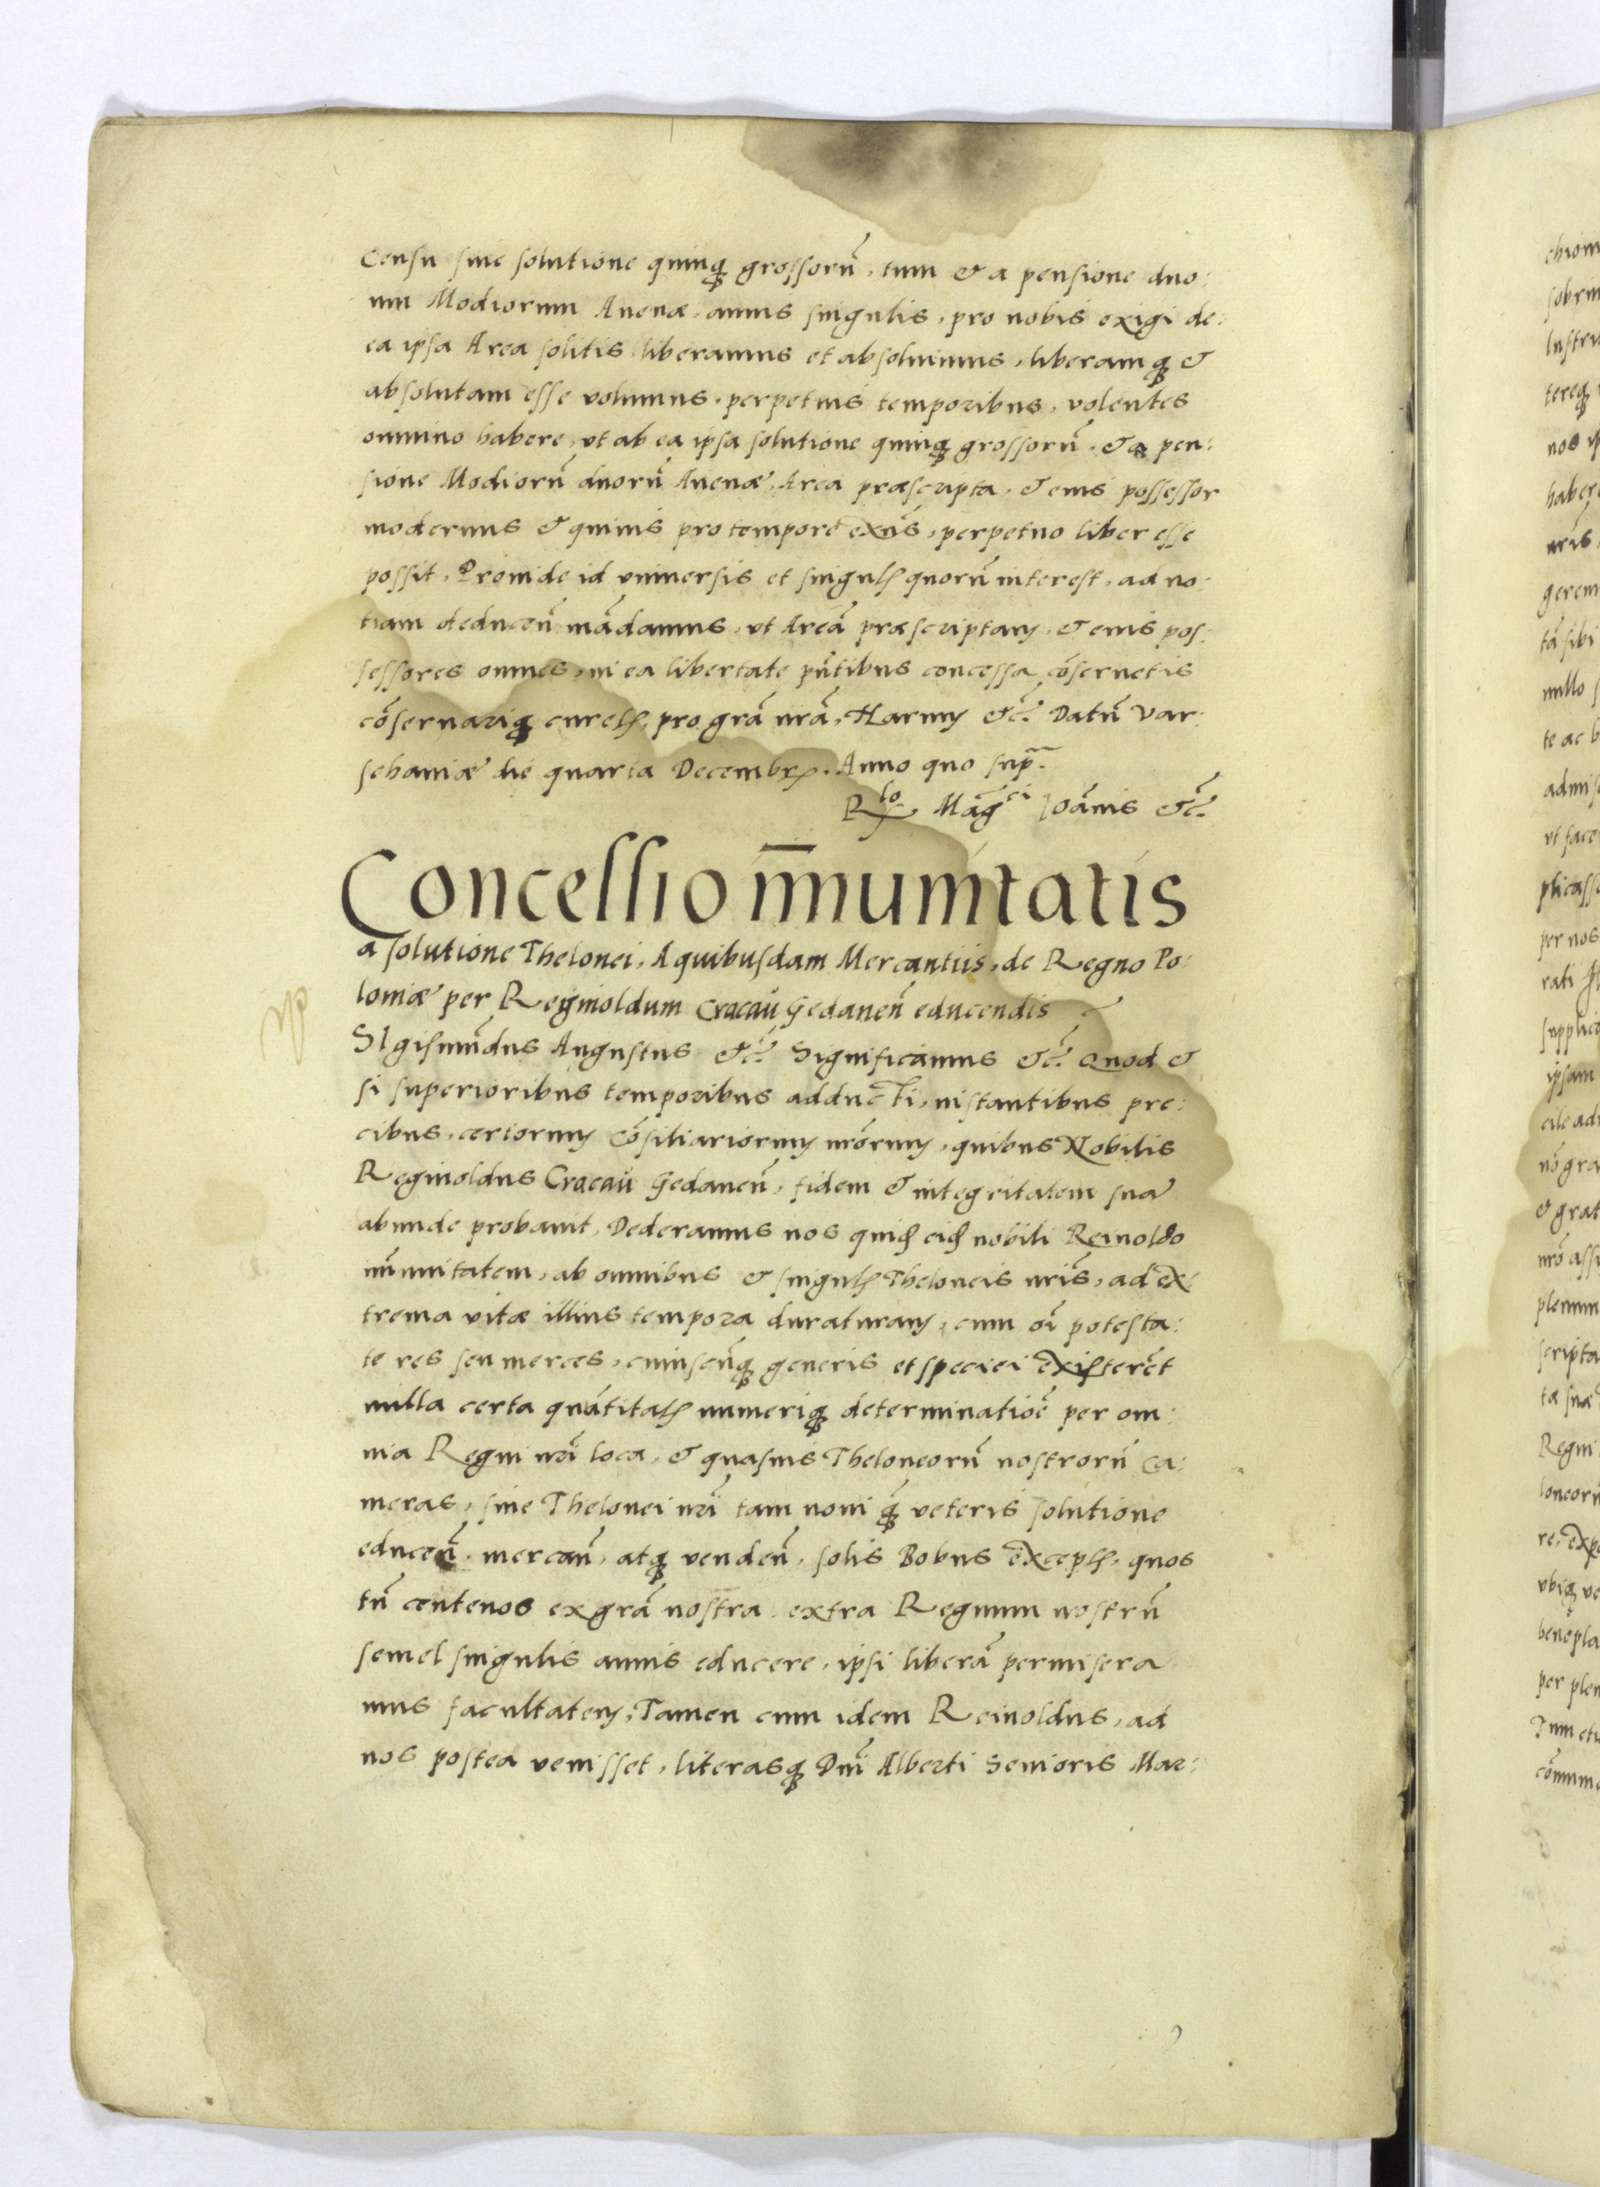 censu siue solutione quinq̃ grossorũ, tum & a pensione duo:
um Modiorum Auenæ, annis singulis, pro nobis exigi de:
ea ipsa Area solitis liberamus et absoluimus, liberamq̃ &
absolutam esse volumus, perpetuis temporibus, volentes
omnino habere, vt ab ea ipsa solutione quinq̃ grossorũ, & a pen:
sione Modiorũ duorũ Auenæ, Area præscripta, & eius possessor
modernus & quiuis pro tempore exñs, perpetuo liber esse
possit, Proinde id vniuersis et singulis quorũ interest, ad no:
tiam deducen̄ mãdamus, vt Areã præscriptam, & eius pos:
sessores omnes, in ea libertate pñtibus concessa, cõseruetis
cõseruariq̃ curetis, pro grã nrã, Harum &c̃. Datũ Var:
schauiæ die quarta Decembris. Anno quo supr̃a
Rlo Mãgci Ioãnis &c̃.
Concessio im̄unitatis
a solutione Thelonei, A quibusdam Mercantiis, de Regno Po:
loniæ per Reginoldum Cracau Gedanen̄ educendis
SIgismũdus Augustus &c̃. Significamus &c̃. Quod &
si superioribus temporibus adducti, instantibus pre:
cibus, certorum Cõsiliariorum nrõrum, quibus Nobilis
Reginoldus Cracau Gedanen̄, fidem & integritatem suã
abunde probauit, Dederamus nos quid eid nobili Reinoldo
im̃unitatem, ab omnibus & singulis Theloneis nrĩs, ad ex:
trema vitæ illius tempora duraturam, cum oĩ potesta:
te res seu merces, cuiuscũq̃ generis et speciei existerẽt
nulla certa quãtitatis numeriq̃ determinatiõe per om:
nia Regni nrĩ loca, & quasuis Theloneorũ nostrorũ Ca:
meras, sine Thelonei nrĩ tam noui q̃ veteris solutione
educen̄, mercan̄, atq̃ venden̄, solis Bobus exceptis, quos
tñ centenos ex grã nostra extra Regnum nostrũ
semel singulis annis educere, ipsi liberã permisera
mus facultatem, Tamen cum idem Reinoldus, ad
nos postea venisset, literasq̃ Dñi Alberti Senioris Mar: